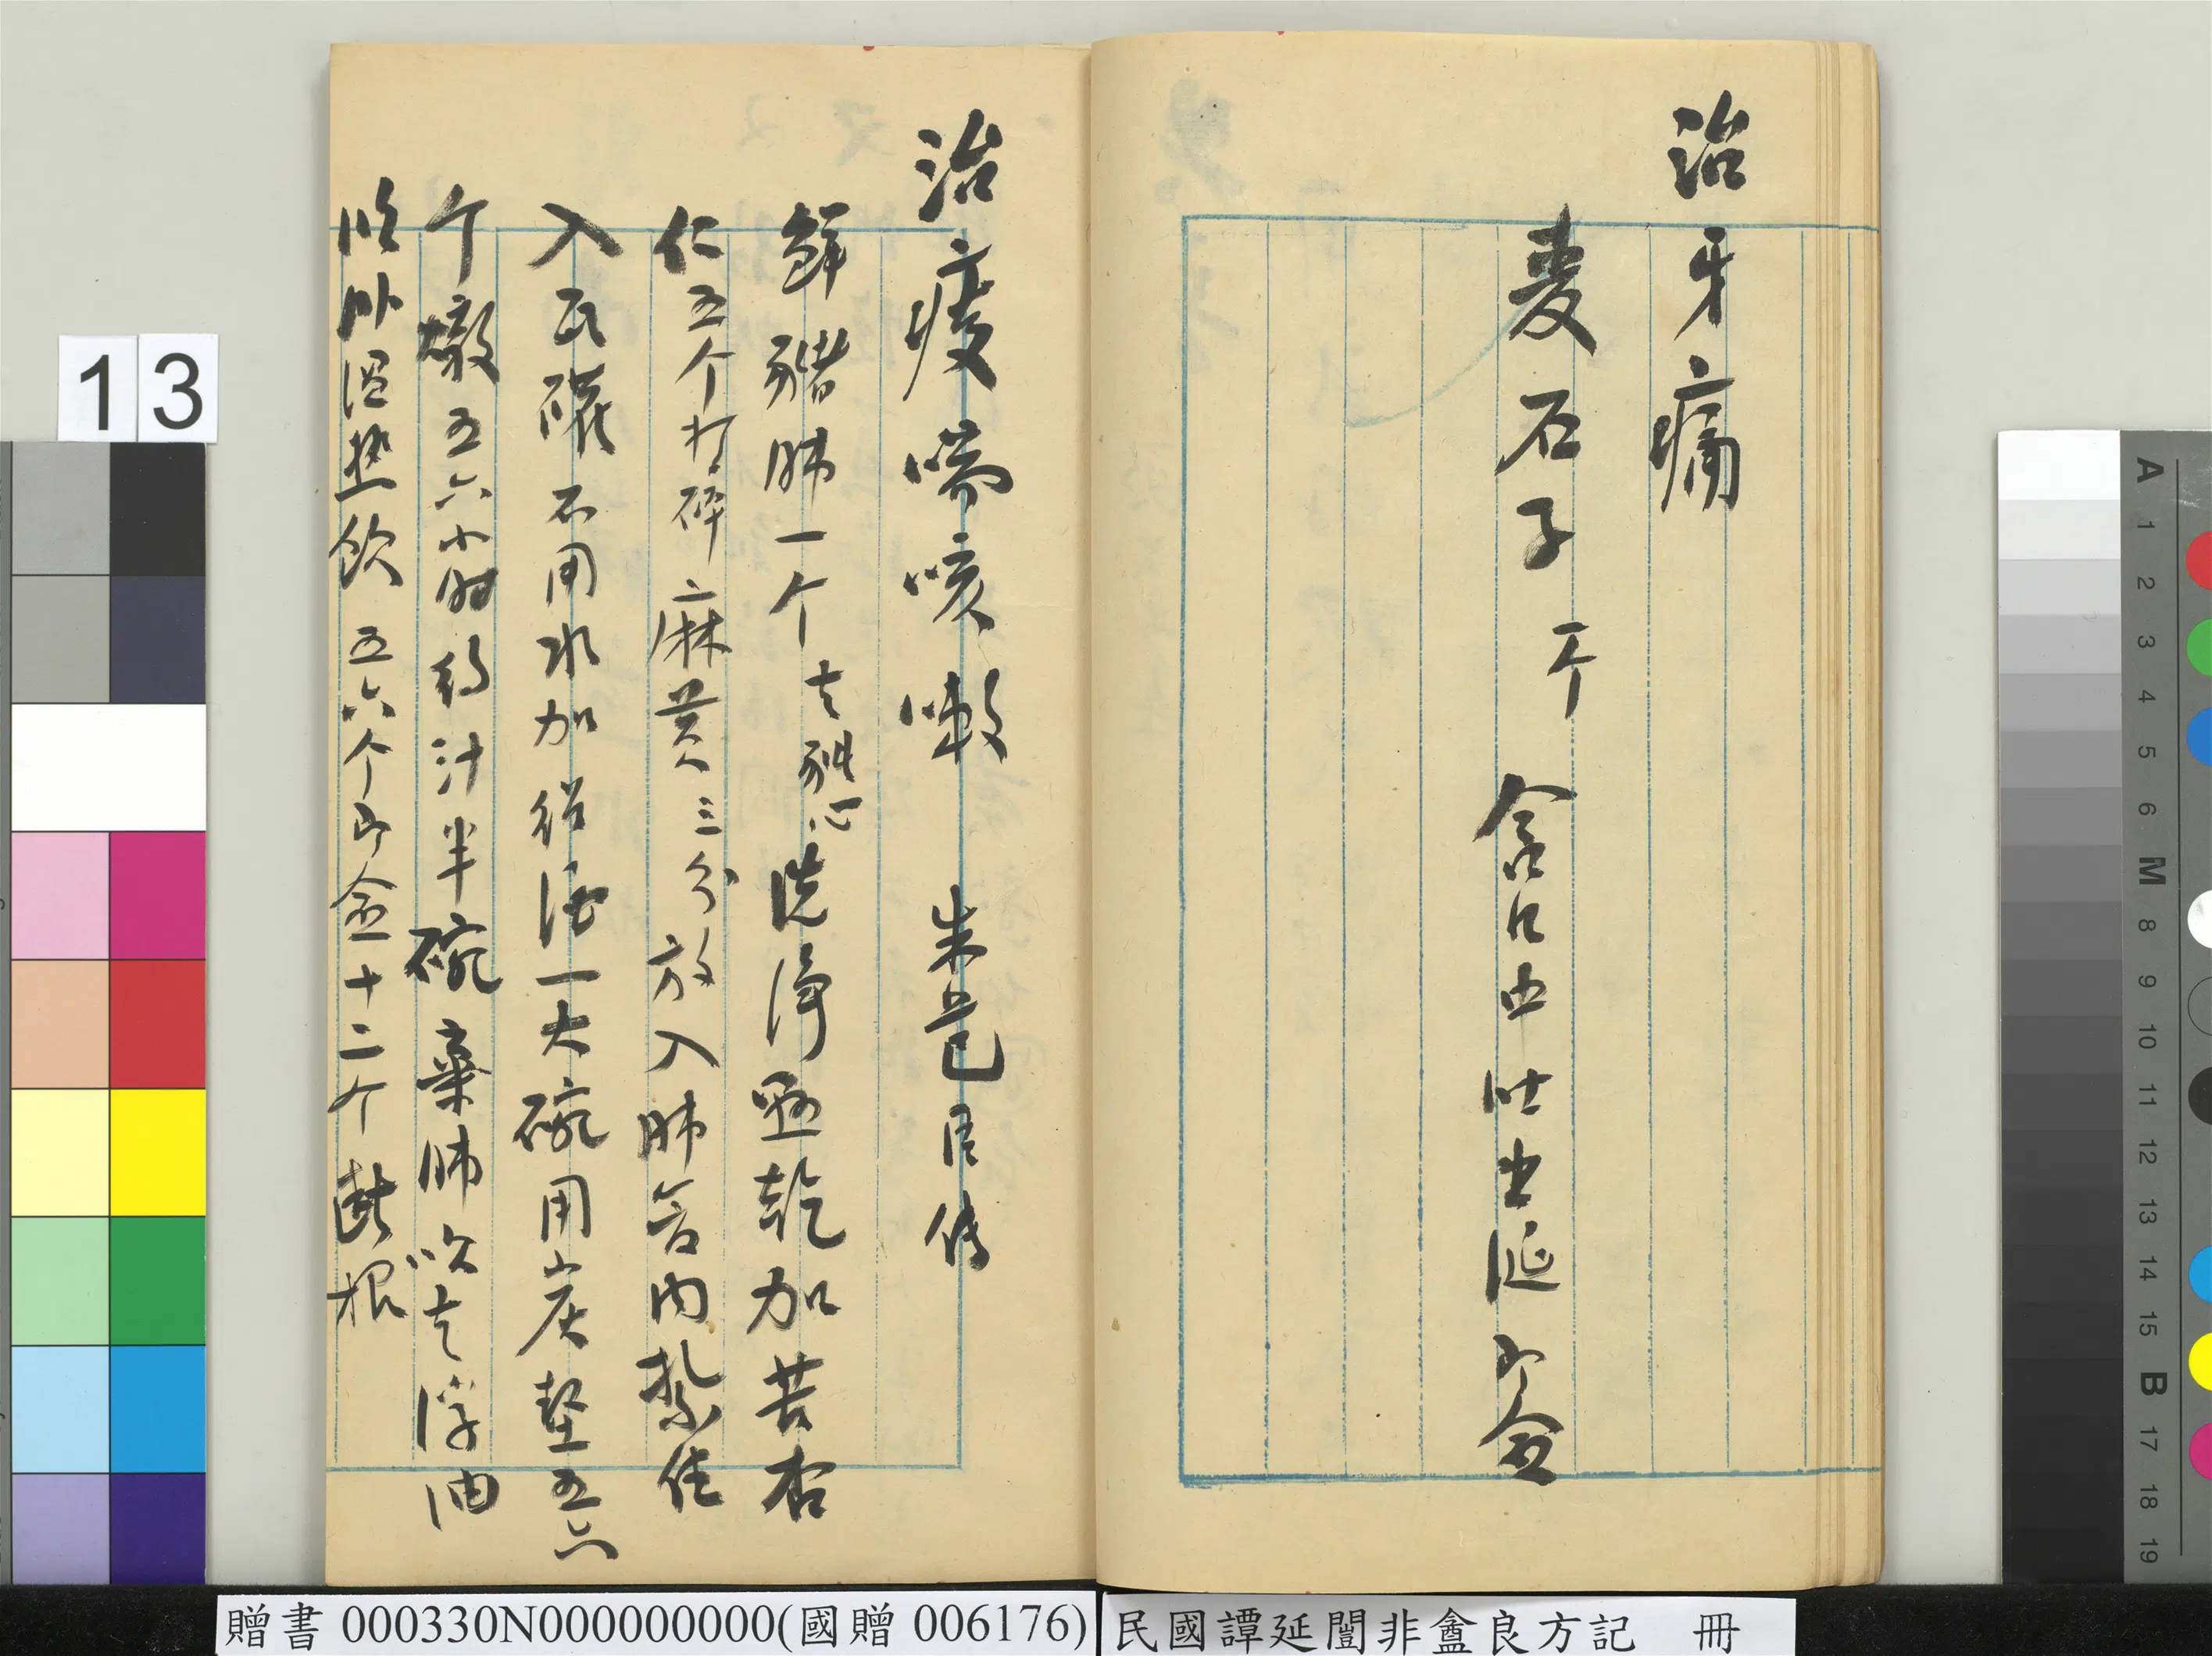 治牙痛
麦石子 一个 含口中吐出涎即愈
治痰喘咳嗽 朱芑臣傳
鮮豬肺一个去豬心洗淨瀝乾加苦杏
仁五个打碎麻黄三分放入肺管内紮住
入瓦罐不用水加紹酒一大碗用炭墼五六
个墩五六小时約汁半碗棄肺吹去浮油
临卧温热飲 五六个即愈十二个断根
13
A 1 2 3 4 5 6 M 8 9 10 11 12 13 14 15 B 17 18 19
贈書 000330N000000000(國贈 006176)
民國譚延闓非盦良方記 冊